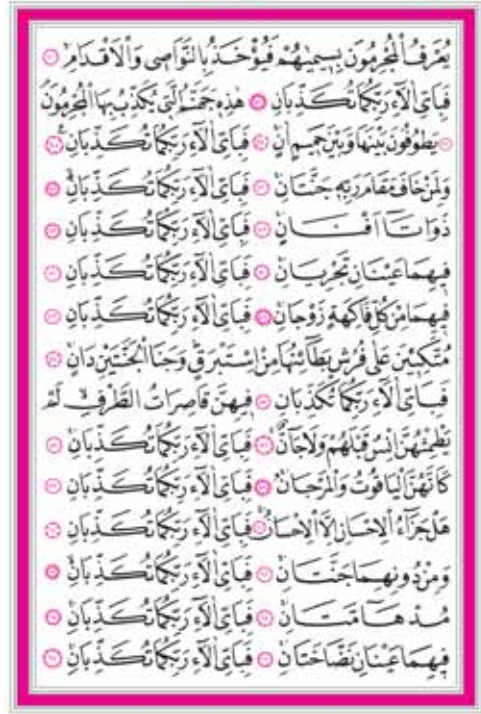 يُعْرَفُ الْمُجْرِمُونَ بِسِيمٰيهُمْ فَيُؤْخَذُ بِالنَّوَاصِى وَالْاَقْدَامِ
فَبِاَىِّ اٰلَٓاءِ رَبِّكُمَا تُكَذِّبَانِ هٰذِهِ جَهَنَّمُ الَّتِى يُكَذِّبُ بِهَا الْمُجْرِمُونَ
يَطُوفُونَ بَيْنَهَا وَبَيْنَ حَمِيمٍ اٰنٍ فَبِاَىِّ اٰلَٓاءِ رَبِّكُمَا تُكَذِّبَانِ
وَلِمَنْ خَافَ مَقَامَ رَبِّهِ جَنَّتَانِ فَبِاَىِّ اٰلَٓاءِ رَبِّكُمَا تُكَذِّبَانِ
ذَوَاتَٓا اَفْنَانٍ فَبِاَىِّ اٰلَٓاءِ رَبِّكُمَا تُكَذِّبَانِ
فِيهِمَا عَيْنَانِ تَجْرِيَانِ فَبِاَىِّ اٰلَٓاءِ رَبِّكُمَا تُكَذِّبَانِ
فِيهِمَا مِنْ كُلِّ فَاكِهَةٍ زَوْجَانِ فَبِاَىِّ اٰلَٓاءِ رَبِّكُمَا تُكَذِّبَانِ
مُتَّكِـِٔينَ عَلٰى فُرُشٍ بَطَٓائِنُهَا مِنْ اِسْتَبْرَقٍ وَجَنَا الْجَنَّتَيْنِ دَانٍ
فَبِاَىِّ اٰلَٓاءِ رَبِّكُمَا تُكَذِّبَانِ فِيهِنَّ قَاصِرَاتُ الطَّرْفِ لَمْ
يَطْمِثْهُنَّ اِنْسٌ قَبْلَهُمْ وَلَا جَٓانٌّ فَبِاَىِّ اٰلَٓاءِ رَبِّكُمَا تُكَذِّبَانِ
كَاَنَّهُنَّ الْيَاقُوتُ وَالْمَرْجَانُ فَبِاَىِّ اٰلَٓاءِ رَبِّكُمَا تُكَذِّبَانِ
هَلْ جَزَٓاءُ الْاِحْسَانِ اِلَّا الْاِحْسَانُ فَبِاَىِّ اٰلَٓاءِ رَبِّكُمَا تُكَذِّبَانِ
وَمِنْ دُونِهِمَا جَنَّتَانِ فَبِاَىِّ اٰلَٓاءِ رَبِّكُمَا تُكَذِّبَانِ
مُدْهَٓامَّتَانِ فَبِاَىِّ اٰلَٓاءِ رَبِّكُمَا تُكَذِّبَانِ
فِيهِمَا عَيْنَانِ نَضَّاخَتَانِ فَبِاَىِّ اٰلَٓاءِ رَبِّكُمَا تُكَذِّبَانِ